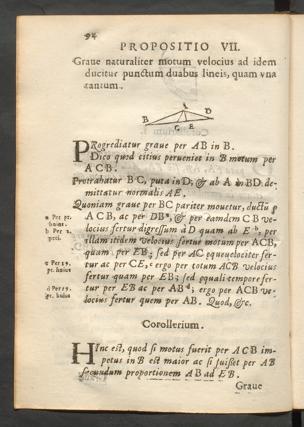 94
PROPOSITIO VII.
Graue naturaliter motum velocius ad idem
ducitur punctum duabus lineis, quam vna
tantum.
A
D
B
C E
PRogrediatur graue per AB in B.
Dico quod citius perueniet in B motum per
ACB.
Protrahatur BC, puta in D; & ab A in BD. de-
mittatur normalis AE.
Quoniam graue per BC pariter mouetur, ductũ p
a Per pr.
huius.
ACB, ac per DB a, & per eamdem CB ve-
b Per 2.
locius fertur digressum à D quam ab E b, per
illam itidem velocius fertur motum per ACB,
quam per EB; sed per AC equeuelociter fer-
c Per 15.
pr. huius
tur ac per CE, c ergo per totum ACB velocius
fertur quam per EB; sed equali tempore fer-
d Per 15.
pr. huius
tur per EB ac per AB d; ergo per ACB ve-
locius fertur quem per AB. Quod, &c.
Corollerium.
HInc est, quod si motus fuerit per ACB im-
petus in B est maior ac si fuisset per AB
secundum proportionem AB ad EB.
Graue